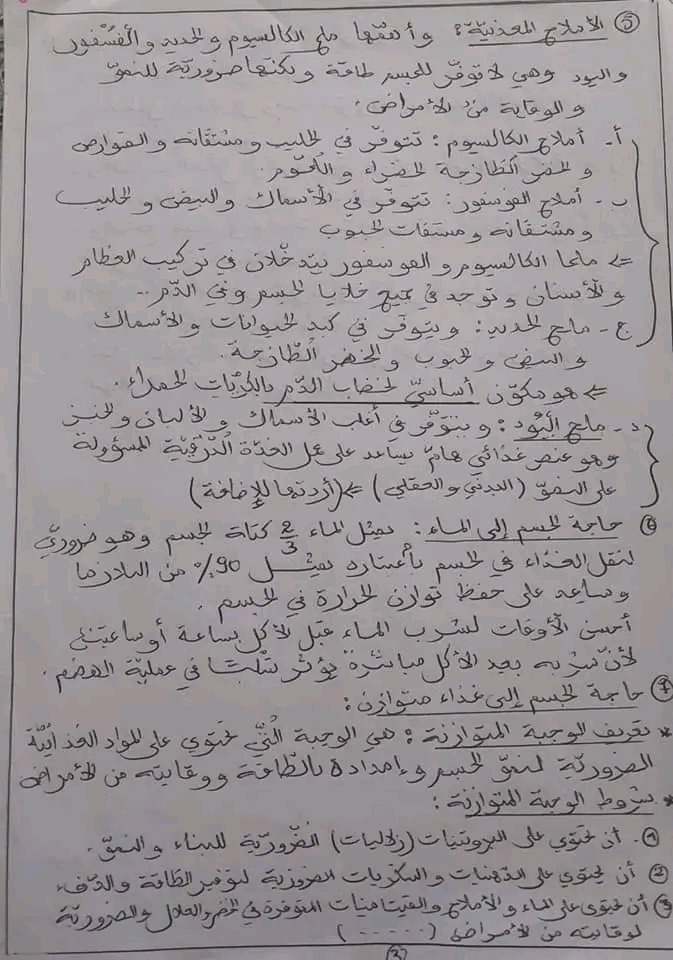 ⑤ الأملاح المعدنيّة: وأهمّها ملح الكالسيوم والحديد والفُسْفور
واليود وهي لا توفّر للجسم طاقة ولكنّها ضروريّة للنموّ
والوقاية من الأمراض.
أ- أملاح الكالسيوم: تتوفّر في الحليب ومشتقاته والقوارص
والخضر الطّازجة الخضراء واللّحوم.
ب- أملاح الفوسفور: تتوفّر في الأسماك والبيض والحليب
ومشتقاته ومشتقات الحبوب
<= ملحا الكالسيوم والفوسفور يتدخّلان في تركيب العظام
والأسنان وتوجد في جميع خلايا الجسم وفي الدّم..
ج- ملح الحديد: ويتوفّر في كبد الحيوانات والأسماك
والبيض والحبوب والخضر الطّازجة.
<= هو مكوّن أساسيّ لخضاب الدّم بالكريات الحمراء.
د- ملح اليُود: ويتوّفر في أغلب الأسماك والألبان والخبز
وهو عنصر غذائي هامّ يساعد على عمل الغدّة الدّرقيّة المسؤولة
على النموّ (البدني والعقلي) <= (أردتها للإضافة)
⑥ حاجة الجسم إلى الماء: يمثل الماء 2/3 كتلة الجسم وهو ضروريّ
لنقل الغذاء في الجسم بأعتباره يمثل 90% من البلازما
وساعد على حفظ توازن الحرارة في الجسم.
أحسن الأوقات لشرب الماء قبل الأكل بساعة أو ساعتين
لأنّ شربه بعد الأكل مباشرة يؤثر سلبًا في عمليّة الهضم.
⑦ حاجة الجسم إلى غذاء متوازن:
* تعريف الوجبة المتوازنة: هي الوجبة الّتي تحتوي على المواد الغذائيّة
الضروريّة لنموّ الجسم وإمداده بالطّاقة ووقايته من الأمراض
* شروط الوجبة المتوازنة:
①. أن تحتوي على البروتينات (زلاليات) الضّروريّة للبناء والنموّ.
② أن تحتوي على الدّهنيات والسكريات الضرورية لتوفير الطّاقة والدّفء
③ أن تحتوي على الماء والأملاح والفيتامينات المتوفرة في الخضر والغلال والضروريّة
لوقايته من الأمراض (.....)
3